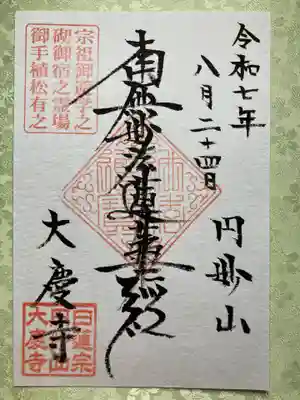 令和七年
八月二十四日
円妙山
南無妙法蓮華経
宗祖御遊学之
砌御宿之霊場
御手植松有之
大慶寺
日蓮宗
大慶寺